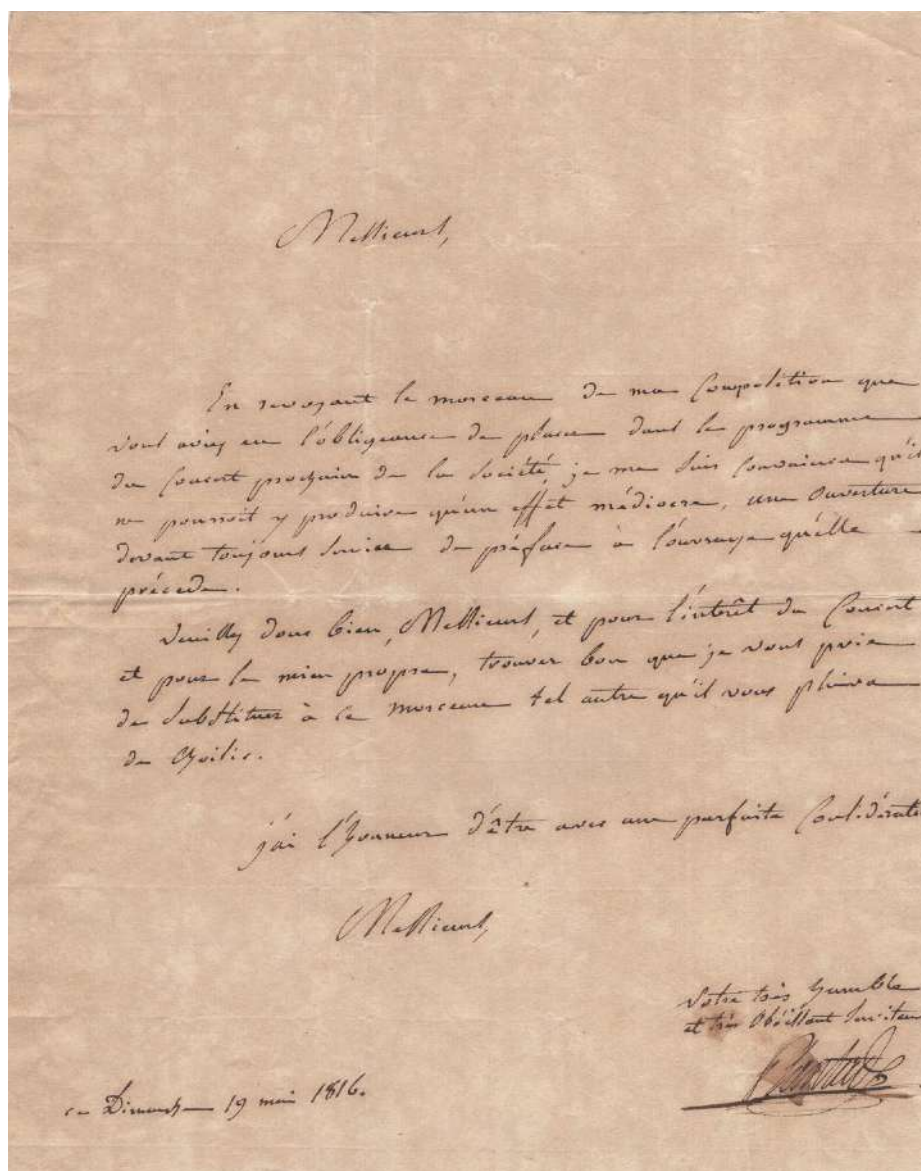 Messieurs,
En revoyant le morceau de ma Composition que
vous aviez eu l'obligeance de placer dans le programme
du Concert prochain de la Société, je me suis convaincu qu'il
ne pourroit y produire qu'un effet médiocre, une ouverture
devant toujours servir de préface à l'ouvrage qu'elle
précede.
Veuillez donc bien, Messieurs, et pour l'intérêt du Concert
et pour le mien propre, trouver bon que je vous prie
de substituer à ce morceau tel autre qu'il vous plaira
de choisir.
j'ai l'honneur d'être avec une parfaite Considérati
Messieurs,
Votre très humble
et très Obéissant Serviteur
ce Dimanche 19 mai 1816.